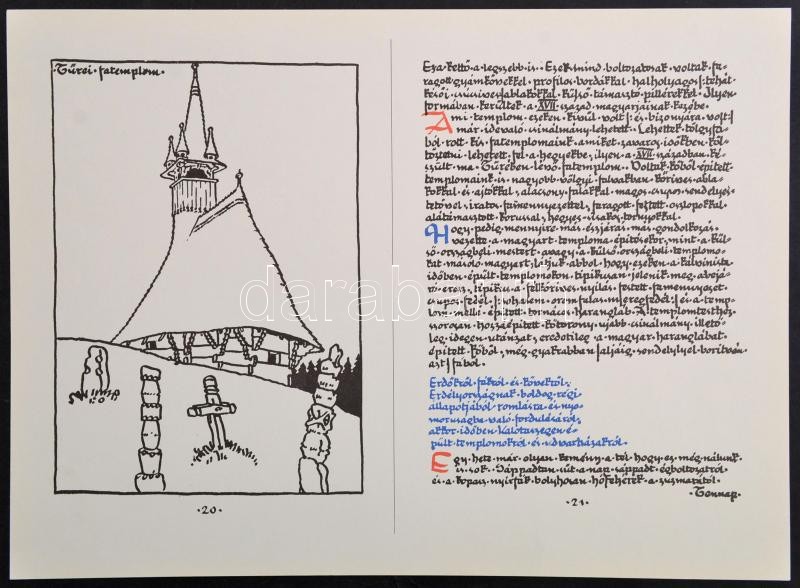 ·Türei·fatemplom·
·20·
Eza·kettő·a·legszebb·is·· Ezek·mind·boltozatosak·voltak·fa-
ragott·gyámkövekkel·profilos·bordákkal·halhólyagos
késői·csúcsíves·ablakokkal·külső·támasztó·pillérekkel·Ilyen
formában·kerültek·a·XVII·század·magyarjainak·kezébe·
Ami·templom·ezeken·kívül·volt·és·bizonyára·volt
már·idevaló·csinálmány·lehetett··Lehettek·tölgyfá-
ból·rótt·kis·fatemplomaink·amiket·zavaros·időkben·köl-
töztetni·lehetett·fel·a·hegyekbe,·ilyen·a·XVII·században·ké-
szült·ma·Türében·lévő·fatemplom··Voltak·kőből·épített
templomaink·is·nagyobb·völgyi·falvakban·köríves·abla-
kokkal·és·ajtókkal,·alacsony·falakkal·magos·csupos·sendelyes·
tetővel,·iratos·famennyezettel,·faragott·festett·oszlopokkal
alátámasztott·kórussal,·hegyes·sisakos·tornyokkal·
Hogy·pedig·mennyire·más·észjárás·más·gondolkozás·
vezette·a·magyart·temploma·építésekor,·mint·a·kül-
ső·országbeli·mestert·avagy·a·külső·országbeli·templomo-
kat·másoló·magyart,·látjuk·abból·hogy·ezeken·a·kálvinista
időben·épült·templomokon·tipikusan·jelenik·meg
eresz,·tipikus·a·félköríves·nyílás·festett·famennyezet
csupos·fedél
lom·mellé·épített·tornácos·harangláb·A·templomtesthez
szorosan·hozzáépített·kőtorony·újabb·csinálmány·illető-
leg·idegen·utánzat,·eredetileg·a·magyar·haranglábat·
épített·kőből,·még·gyakrabban·fá aljáig·sendelylyel·borítván
azt fából·
Erdőkről·fákról·és·kövekről·
Erdélyországnak·boldog·régi
állapotjából·romlásra·és·nyo-
morúságba·való·fordulásáról,
akkor·időben·Kalotaszegen·é-
pült·templomokról·és·udvarházakról·
Egy·hete·már·olyan·kemény·a·tél·hogy·ez·még·nálunk
is·sok··Sáppadtan·süt·a·nap·sáppadt·égboltozatról
és·a·kopasz·nyírfák·bolyhosan·hófehérek·a·zuzmarától·
·Tennap·
·21·
darabanth